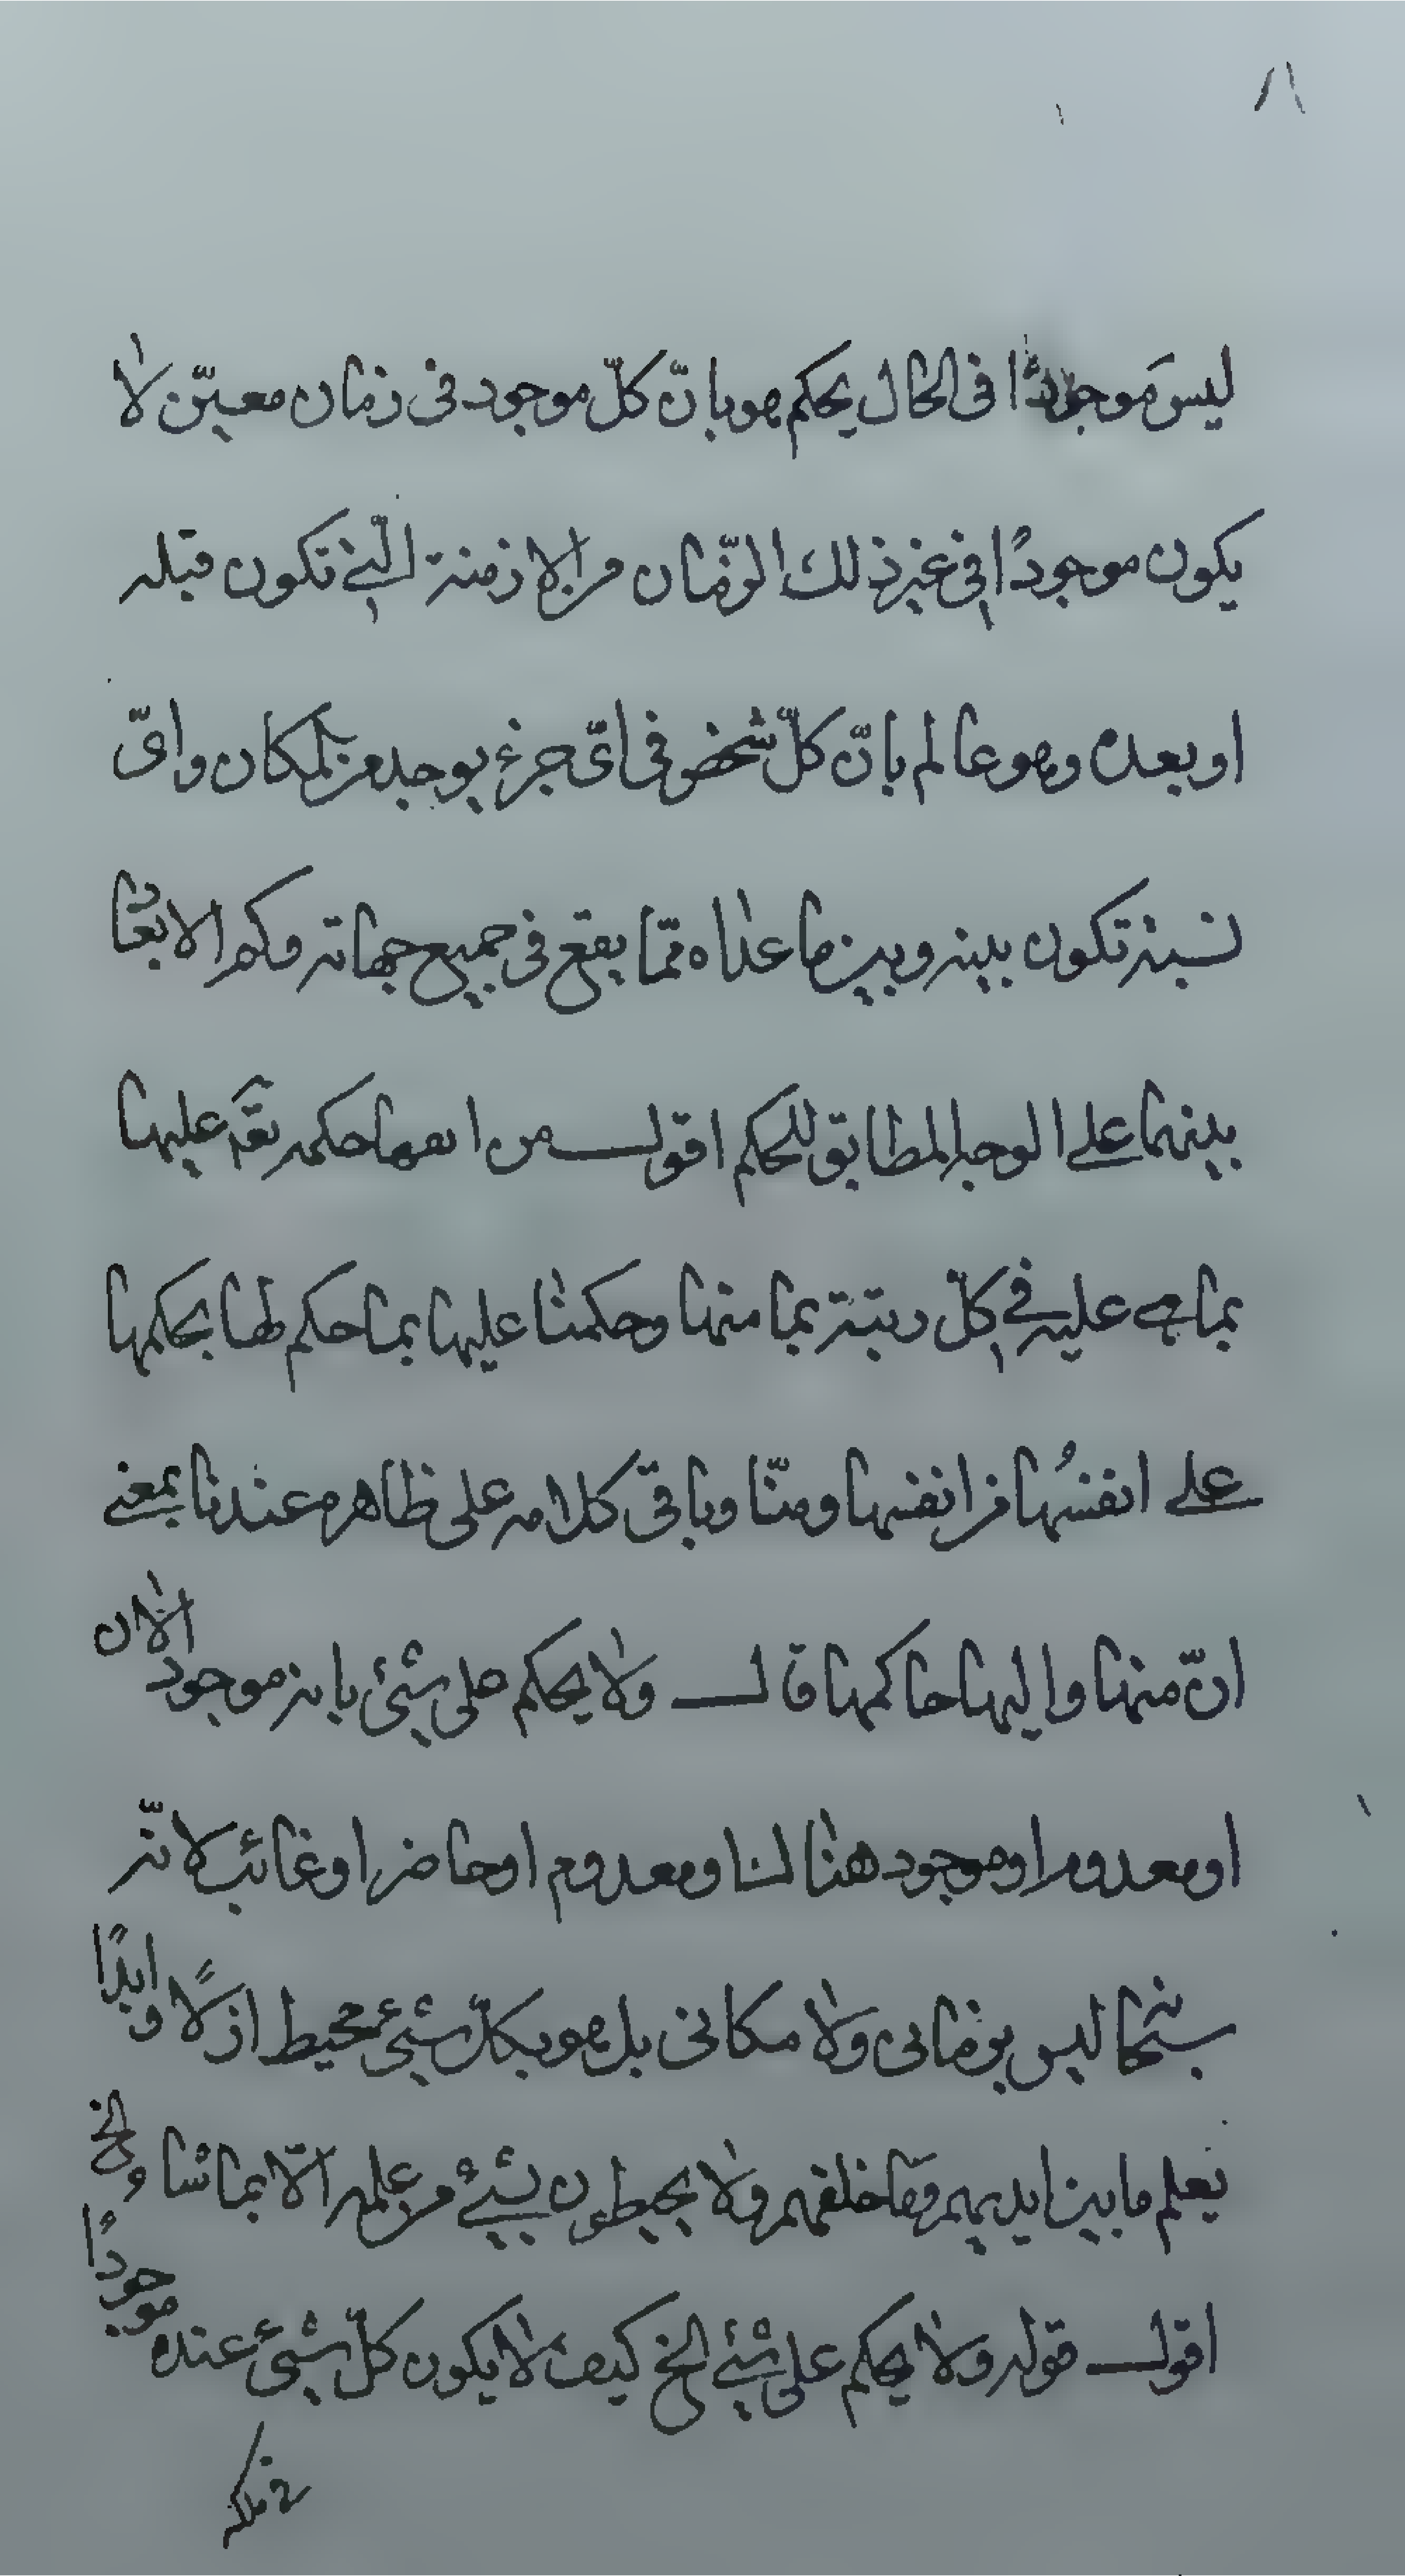 ٨١
ليسَ موجودًا فى الحال يحكم هو بانّ كلّ موجود فى زمان معيّن لا
يكون موجودًا فى غير ذلك الزّمان من الازمنة الّتى تكون قبله
او بعده وهو عالم بانّ كلّ شخص فى اىّ جزء يوجد من المكان واىّ
نسبة تكون بينه وبين ما عداه ممّا يقع فى جميع جهاته وكم الابعاد
بينهما على الوجه المطابق للحكم اقول من حكمه تعالى عليها
بما هى عليه فى كلّ رتبة بما منها وحكمنا عليها بما حكم لها بحكمها
على انفسُها من انفسها ومنّا وباقى كلامه على ظاهره عندنا بمعنى
انّ منها واليها حاكمها قال ولا يحكم على شىء بانه موجود الان
او معدوم او موجود هناك او معدوم او حاضر او غائب لانّه
سبحانه ليس بزمانى ولا مكانى بل هو بكلّ شىء محيط ازلًا وابدًا
يعلم ما بين ايديهم وما خلفهم ولا يحيطون بشىء من علمه الّا بما شاء الخ
اقول قوله ولا يحكم على شىء الخ كيف لا يكون كلّ شىء عنده موجودًا
فى ملكه